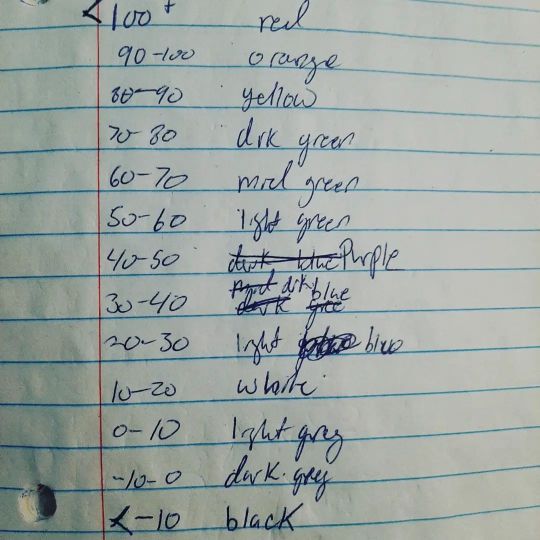 <100+ red
90-100 orange
80-90 yellow
70-80 drk green
60-70 mid green
50-60 light green
40-50 dark blue Purple
30-40 drk blue
20-30 light blue
10-20 white
0-10 light grey
-10-0 dark grey
<-10 black